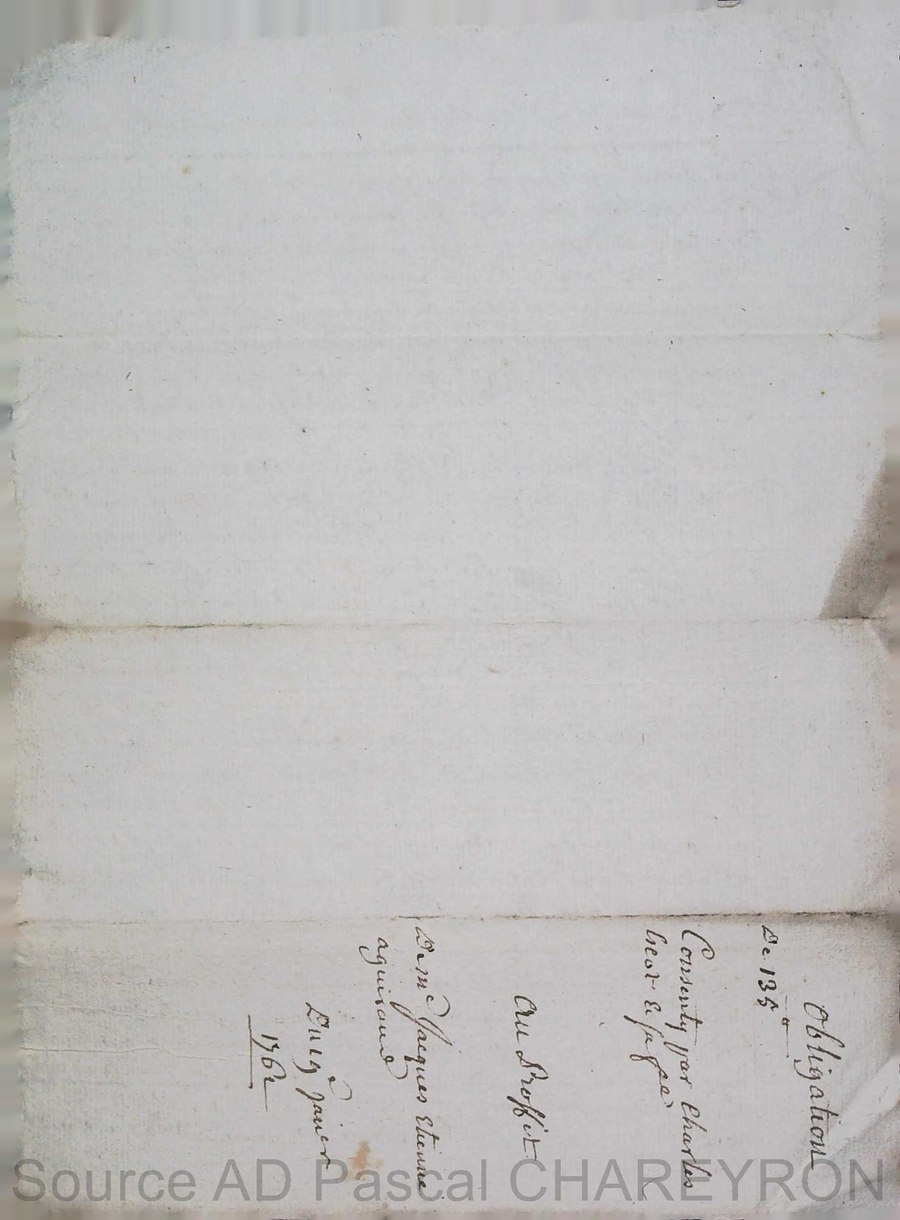 Obligation
De 135 ᵗᵗ
Consenty par Charles
Au Proffit
De mᵉ Jacques Etienne
aguiraud
Du 19ᵉ janier
1762
Source AD Pascal CHAREYRON